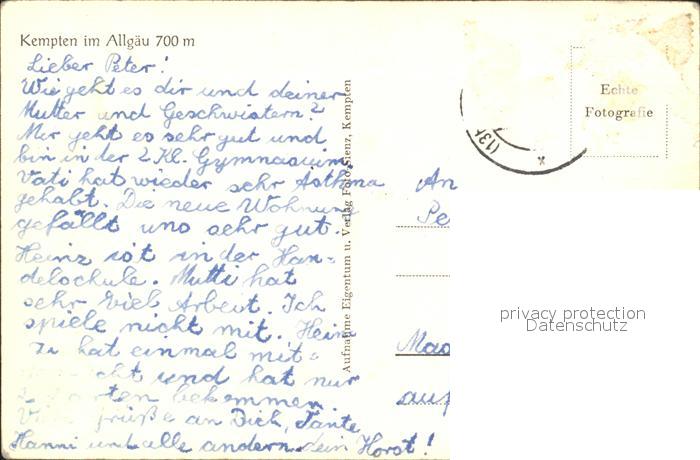 Kempten im Allgäu 700 m
Lieber Peter!
Wie geht es dir und deiner
Mutter und Geschwistern?
Mir geht es sehr gut und
bin in der 2 Kl. Gymnasium
Vati hat wieder sehr Asthma
gehabt. Die neue Wohnung
gefällt uns sehr gut.
Heinz ist in der Han-
delsschule. Mutti hat
sehr viel Arbeit. Ich
spiele nicht mit. Heinz
hat einmal mit-
und hat nur
bekommen
grüße an Dich, Tante
Hanni und alle andern dein Horst!
Aufnahme Eigentum u. Verlag Foto Kempten
Echte
Fotografie
(13
An
Pe
auf
privacy protection
Datenschutz